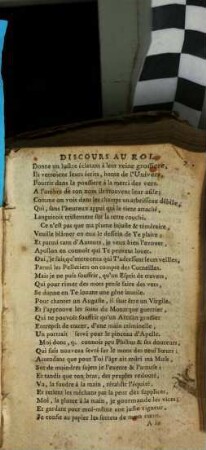 DISCOURS AU ROI.
Donne un lustre éclatant à leur veine grossiere,
Ils verroient leurs écrits, honte de l'Univers,
Pourrir dans la poussiere à la merci des vers.
A l'ombre de ton nom ils trouvent leur asile;
Comme on voit dans les champs un arbrisseau débile,
Qui, sans l'heureux appui qui le tient attaché,
Languiroit tristement sur la terre couché.
Ce n'est pas que ma plume injuste & téméraire,
Veuille blâmer en eux le dessein de Te plaire:
Et parmi tant d'Auteurs, je veux bien l'avouer,
Apollon en connoît qui Te peuvent louer.
Oui, je sai, qu'entre ceux qui T'adressent leurs veilles,
Parmi les Pelletiers on compte des Corneilles.
Mais je ne puis souffrir, qu'un Esprit de travers,
Qui pour rimer des mots pense faire des vers,
Se donne en Te louant une gêne inutile.
Pour chanter un Auguste, il faut être un Virgile.
Et j'approuve les soins du Monarque guerrier,
Qui ne pouvoit souffrir qu'un Artisan grossier
Entreprît de tracer, d'une main criminelle,
Un portrait réservé pour le pinceau d'Apelle.
Moi donc, qui connois peu Phébus & ses douceurs,
Qui suis nouveau sevré sur le mont des neuf Sœurs:
Attendant que pour Toi l'âge ait mûri ma Muse,
Sur de moindres sujets je l'exerce & l'amuse:
Et tandis que ton bras, des peuples redouté,
Va, la foudre à la main, rétablir l'équité,
Et retient les méchans par la peur des supplices,
Moi, la plume à la main, je gourmande les vices;
Et gardant pour moi-même une juste rigueur,
Je confie au papier les secrets de mon cœur.